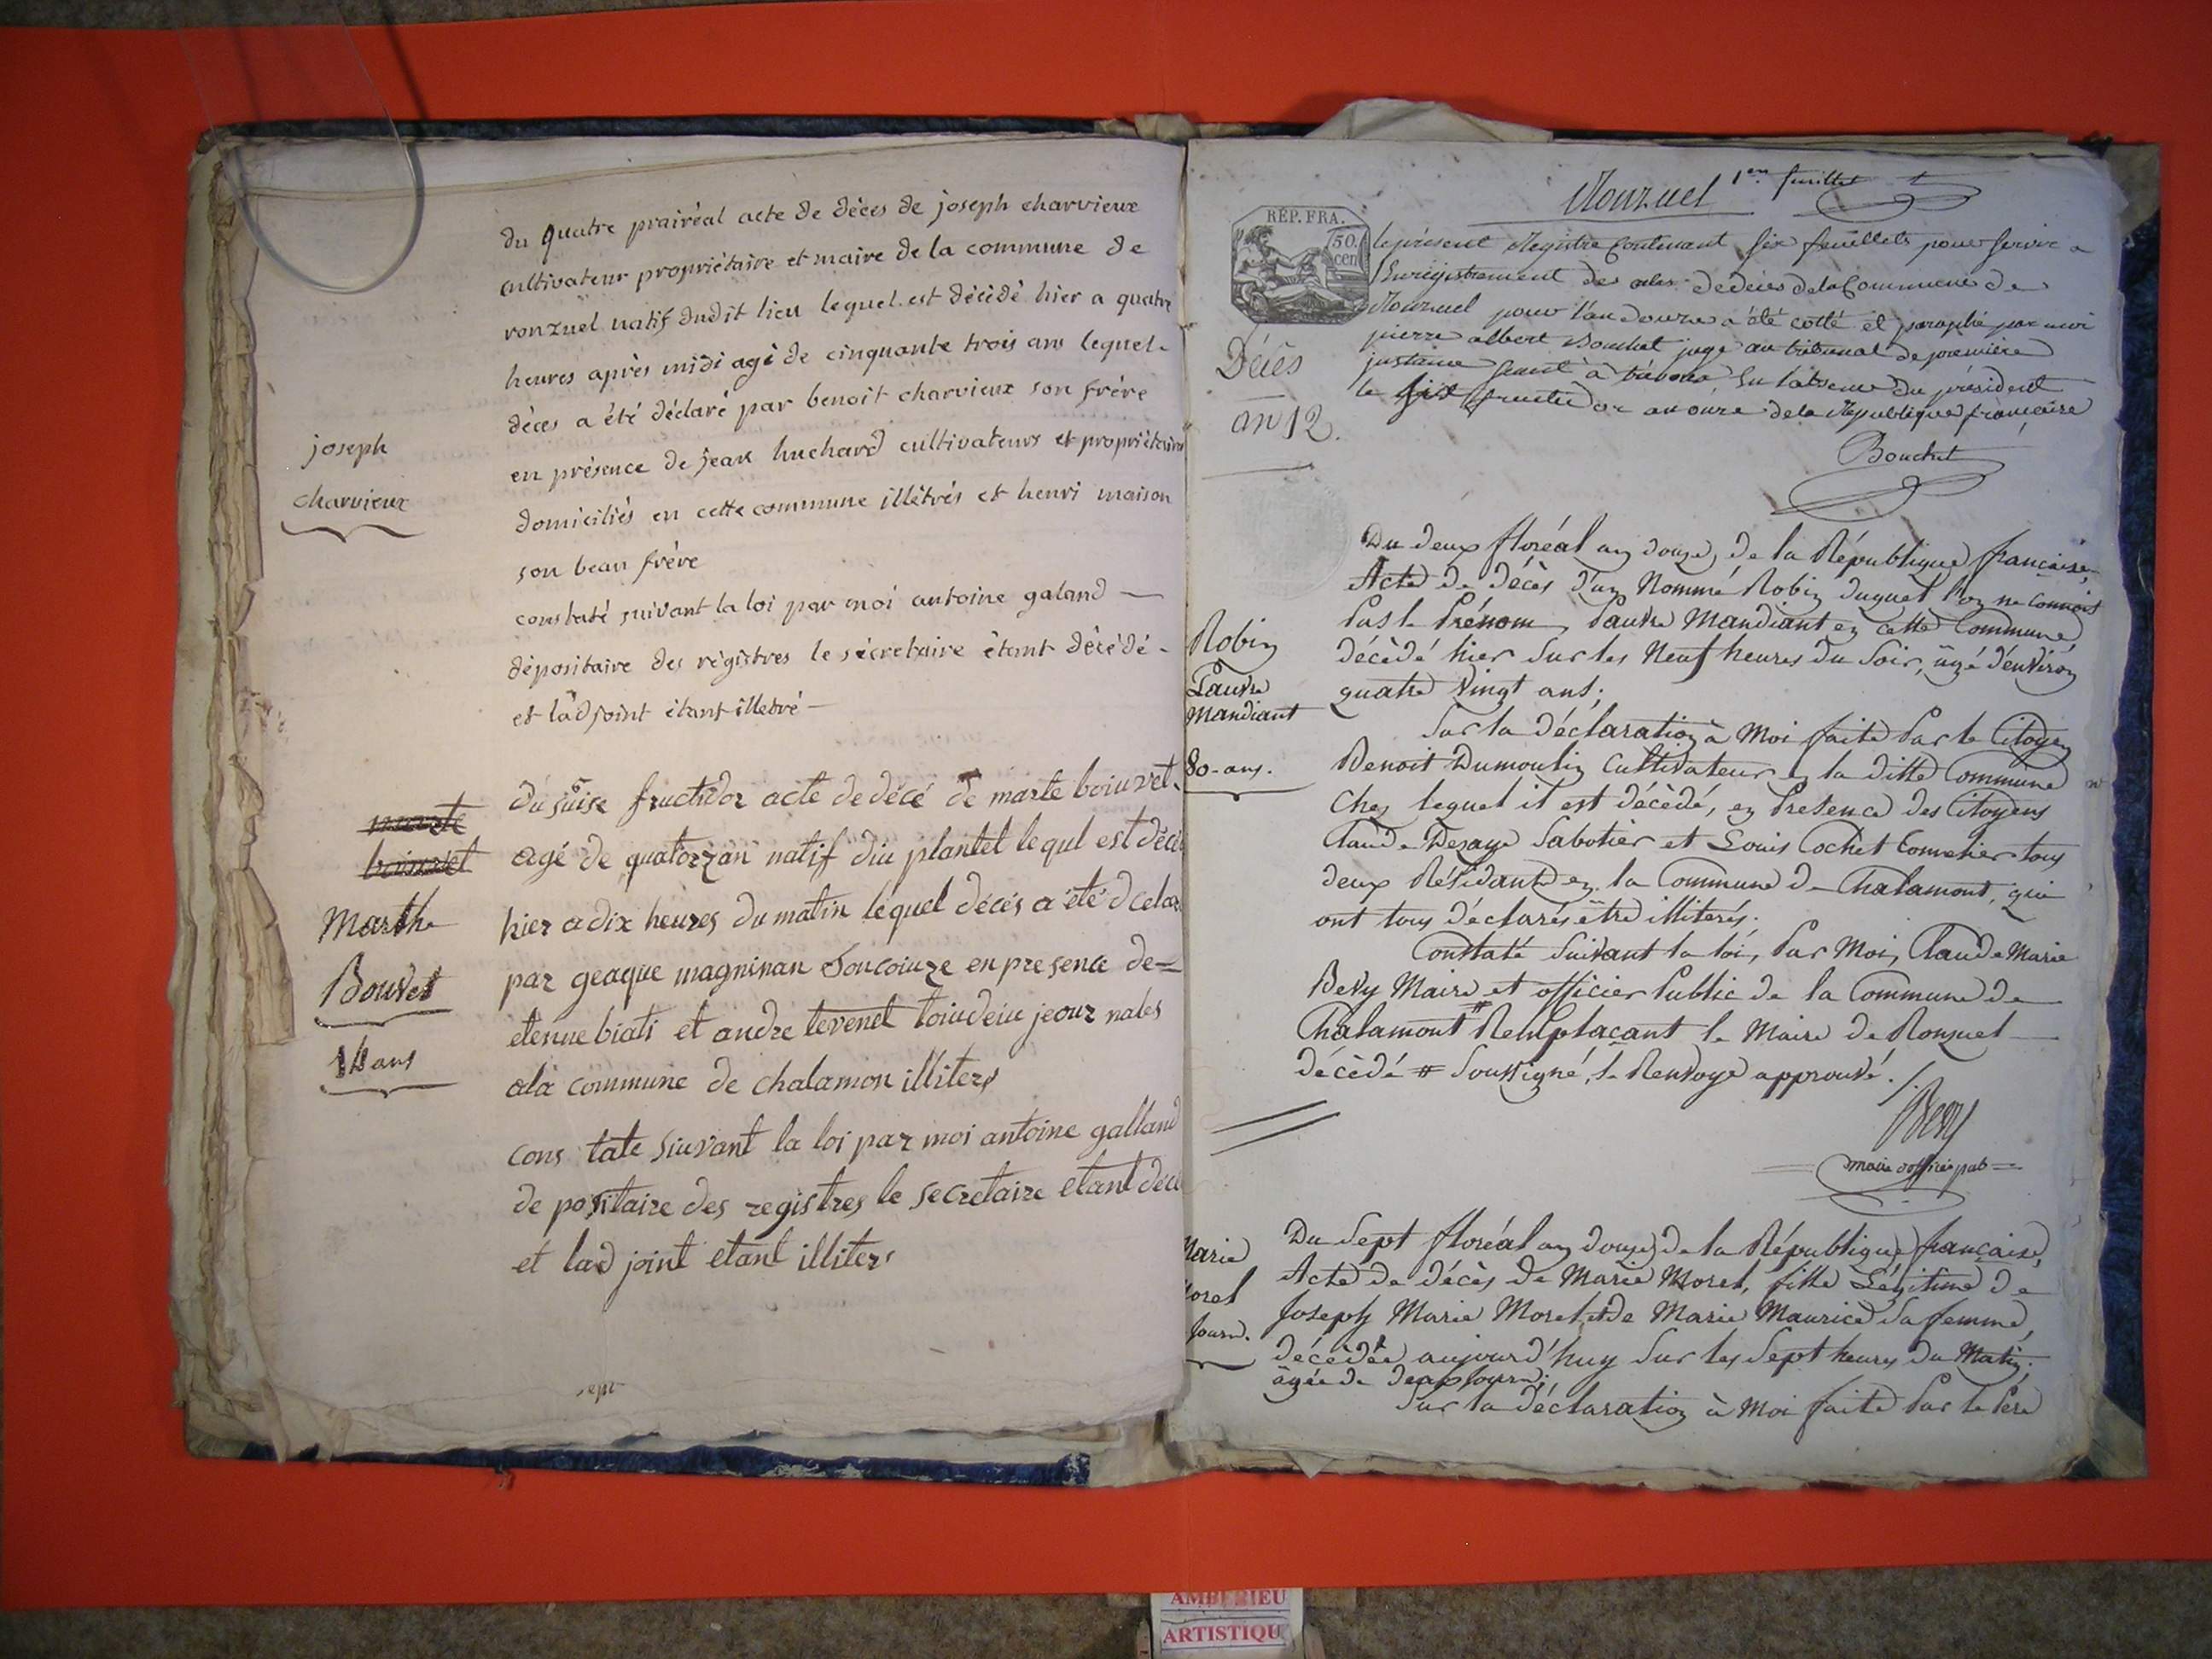 du quatre prairéal acte de décès de joseph charvieux
cultivateur propriétaire et maire de la commune de
ronzuel natif dudit lieu lequel est décédé hier a quatre
heures après midi agé de cinquante trois ans lequel
décès a été déclaré par benoit charvieux son frère
joseph
charvieux
en présence de jean huchard cultivateurs et propriétaires
domiciliés en cette commune illétrés et henri maison
son beau frère
constaté suivant la loi par moi antoine galand
dépositaire des régistres le sécretaire étant décédé
et l'adjoint étant illetré
marte
boiuvet
Marthe
Bouvet
14 ans
du suise fructidor acte de décé de marte boiuvet
agé de quatorzan natif diu plantet lequl est décé
hier a dix heures du matin lequel décés a été dcelar
par geaque magninan son coiuze en presence de=
etenne biati et andre tevenet toiudeiu jeour nales
ala commune de chalamon illiters
cons tate siuvant la loi par moi antoine galland
de positaire des registres le secretaire etant déce
et lad joint etant illiters
sept
Ronzuel 1er feuillet
RÉP. FRA.
50
cen
Décès
an 12.
le présent Registre Contenant six feuillets pour servir a
l'Enregistrement des actes de décès de la Commune de
Ronzuel pour l'an douze a été cotté et paraphé par moi
pierre albert Bouchet juge au tribunal de première
justance séant à trévoux, en l'absence du président
le six fructidor an onze de la République française
Bouchet
Du deux floréal an douze, de la République française,
Acte de décès d'un Nommé Robin duquel l'on ne connoit
Pas le Prénom, Pauvre Mandiant en cette Commune
décèdé hier sur les Neuf heures du Soir, âgé d'environ
quatre Vingt ans;
Robin
Pauvre
Mandiant
80-ans.
Sur la déclaration à Moi faite Par le Citoyen
Benoit Dumoulin Cultivateur en la ditte Commune
Chez lequel il est décèdé, en Presence des Citoyens
Claude Desaye Sabotier et Louis Cochet tous
deux Résidants en la Commune de Chalamont, qui
ont tous déclarés être illiterés.
Constaté Suivant la loi, Par Moi, Claude Marie
Bevy Maire et officier Public de la Commune de
Chalamont # Remplaçant le Maire de Ronzuel
décèdé # Soussigné, le Renvoye approuvé.
Bevy
maire officier pub
Marie
Morel
Journ.
Du Sept floréal an douze, de la République française,
Acte de décès de Marie Morel, fille Légitime de
Joseph Marie Morel et de Marie Maurice sa femme,
décèdée aujourd'huy Sur les Sept heures du Matin.
âgée de deux journ.
Sur la déclaration à Moi faite Par le Père
AMBERIEU
ARTISTIQU